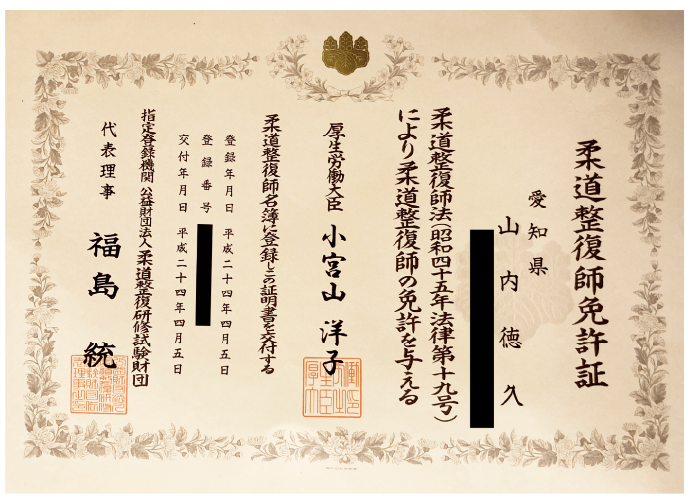 柔道整復師免許証
愛知県
山内徳久
柔道整復師法(昭和四十五年法律第十九号)
により柔道整復師の免許を与える
厚生労働大臣 小宮山洋子
柔道整復師名簿に登録しこの証明書を交付する
登録年月日 平成二十四年四月五日
登録番号
交付年月日 平成二十四年四月五日
指定登録機関 公益財団法人柔道整復研修試験財団
代表理事 福島統